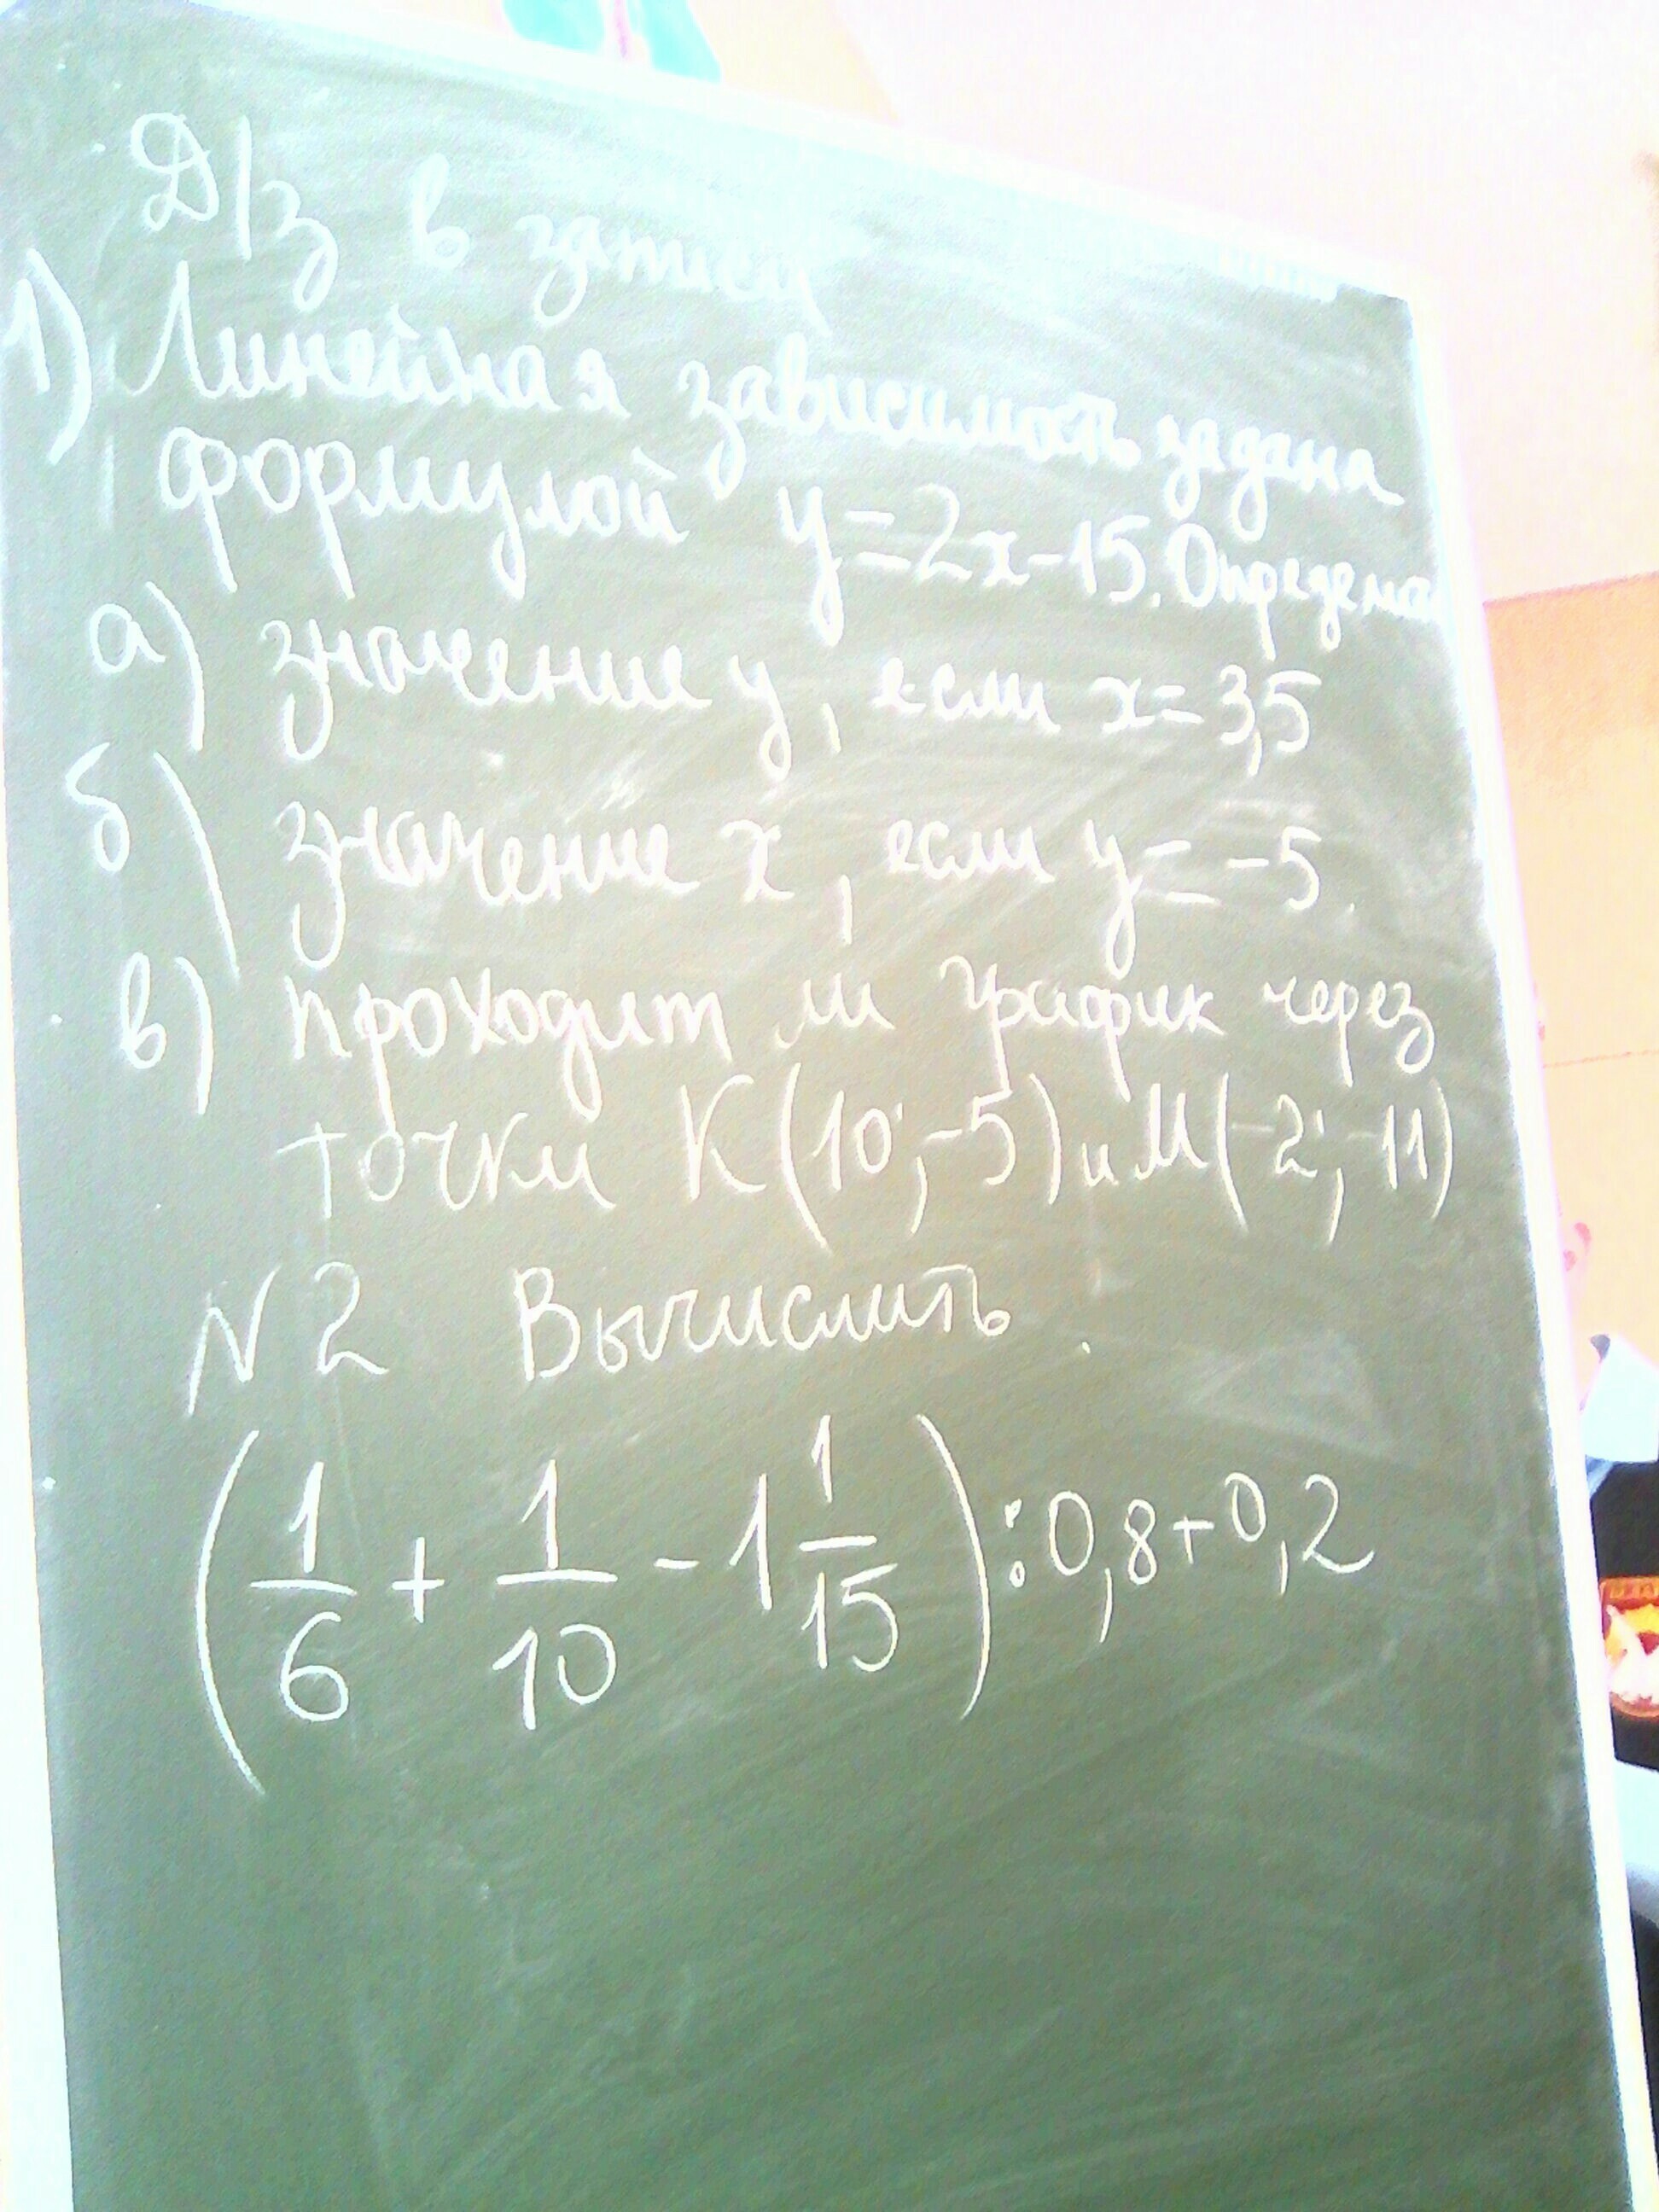 Д/з в записи
1) Линейная зависимость задана
формулой y=2x-15. Определ
а) значение y, если x=3,5
б) значение x, если y=-5.
в) проходит ли график через
точки K(10;-5) и M(-2;-11)
N2 Вычислить.
(1/6 + 1/10 - 1 1/15) : 0,8+0,2